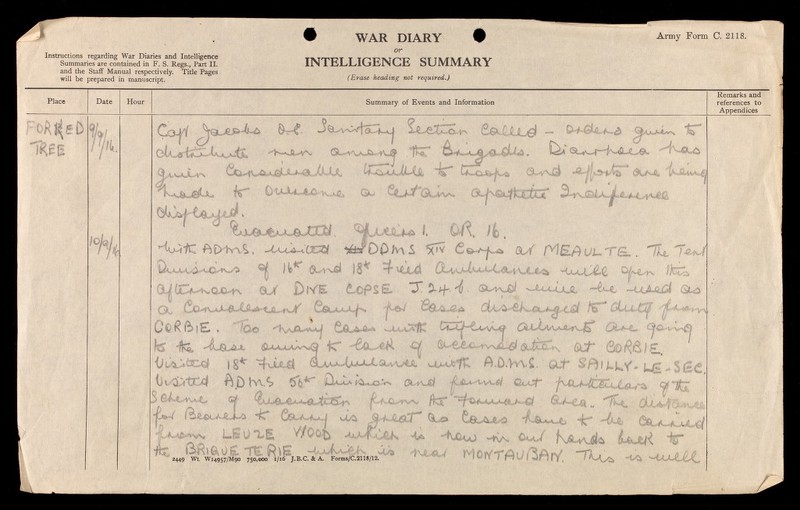 WAR DIARY
or
INTELLIGENCE SUMMARY
(Erase heading not required.)
Army Form C. 2118.
Instructions regarding War Diaries and Intelligence
Summaries are contained in F. S. Regs., Part II.
and the Staff Manual respectively. Title Pages
will be prepared in manuscript.
Place
Date
Hour
Summary of Events and Information
Remarks and
references to
Appendices
FORKED
TREE
9/9/16.
Capt Jacobs O.C. Sanitary Section called - orders given to
distribute men among the Brigades. Diarrhoea has
given considerable trouble to troops and efforts are being
made to overcome a certain apathetic indifference
displayed.
Evacuated. Officers 1. OR. 16.
10/9/16
With ADMS. visited DDMS XIV Corps at MEAULTE. The Tent
Divisions of 16th and 18th Field Ambulances will open this
afternoon at DIVE COPSE J.24.b. and will be used as
a Convalescent Camp for cases discharged to duty from
CORBIE. Too many cases with trifling ailments are going
to the base owing to lack of accommodation at CORBIE.
Visited 18th Field Ambulance with A.D.M.S. at SAILLY-LE-SEC.
Visited ADMS 56th Division and found out particulars of the
Scheme of Evacuation from the forward area. The distance
for Bearers to carry is great as cases have to be carried
from LEUZE WOOD which is now in our hands back to
the BRIQUETERIE which is near MONTAUBAN. This is well
2449 Wt. W14957/M90 750,000 1/16 J.B.C. & A. Forms/C.2118/12.